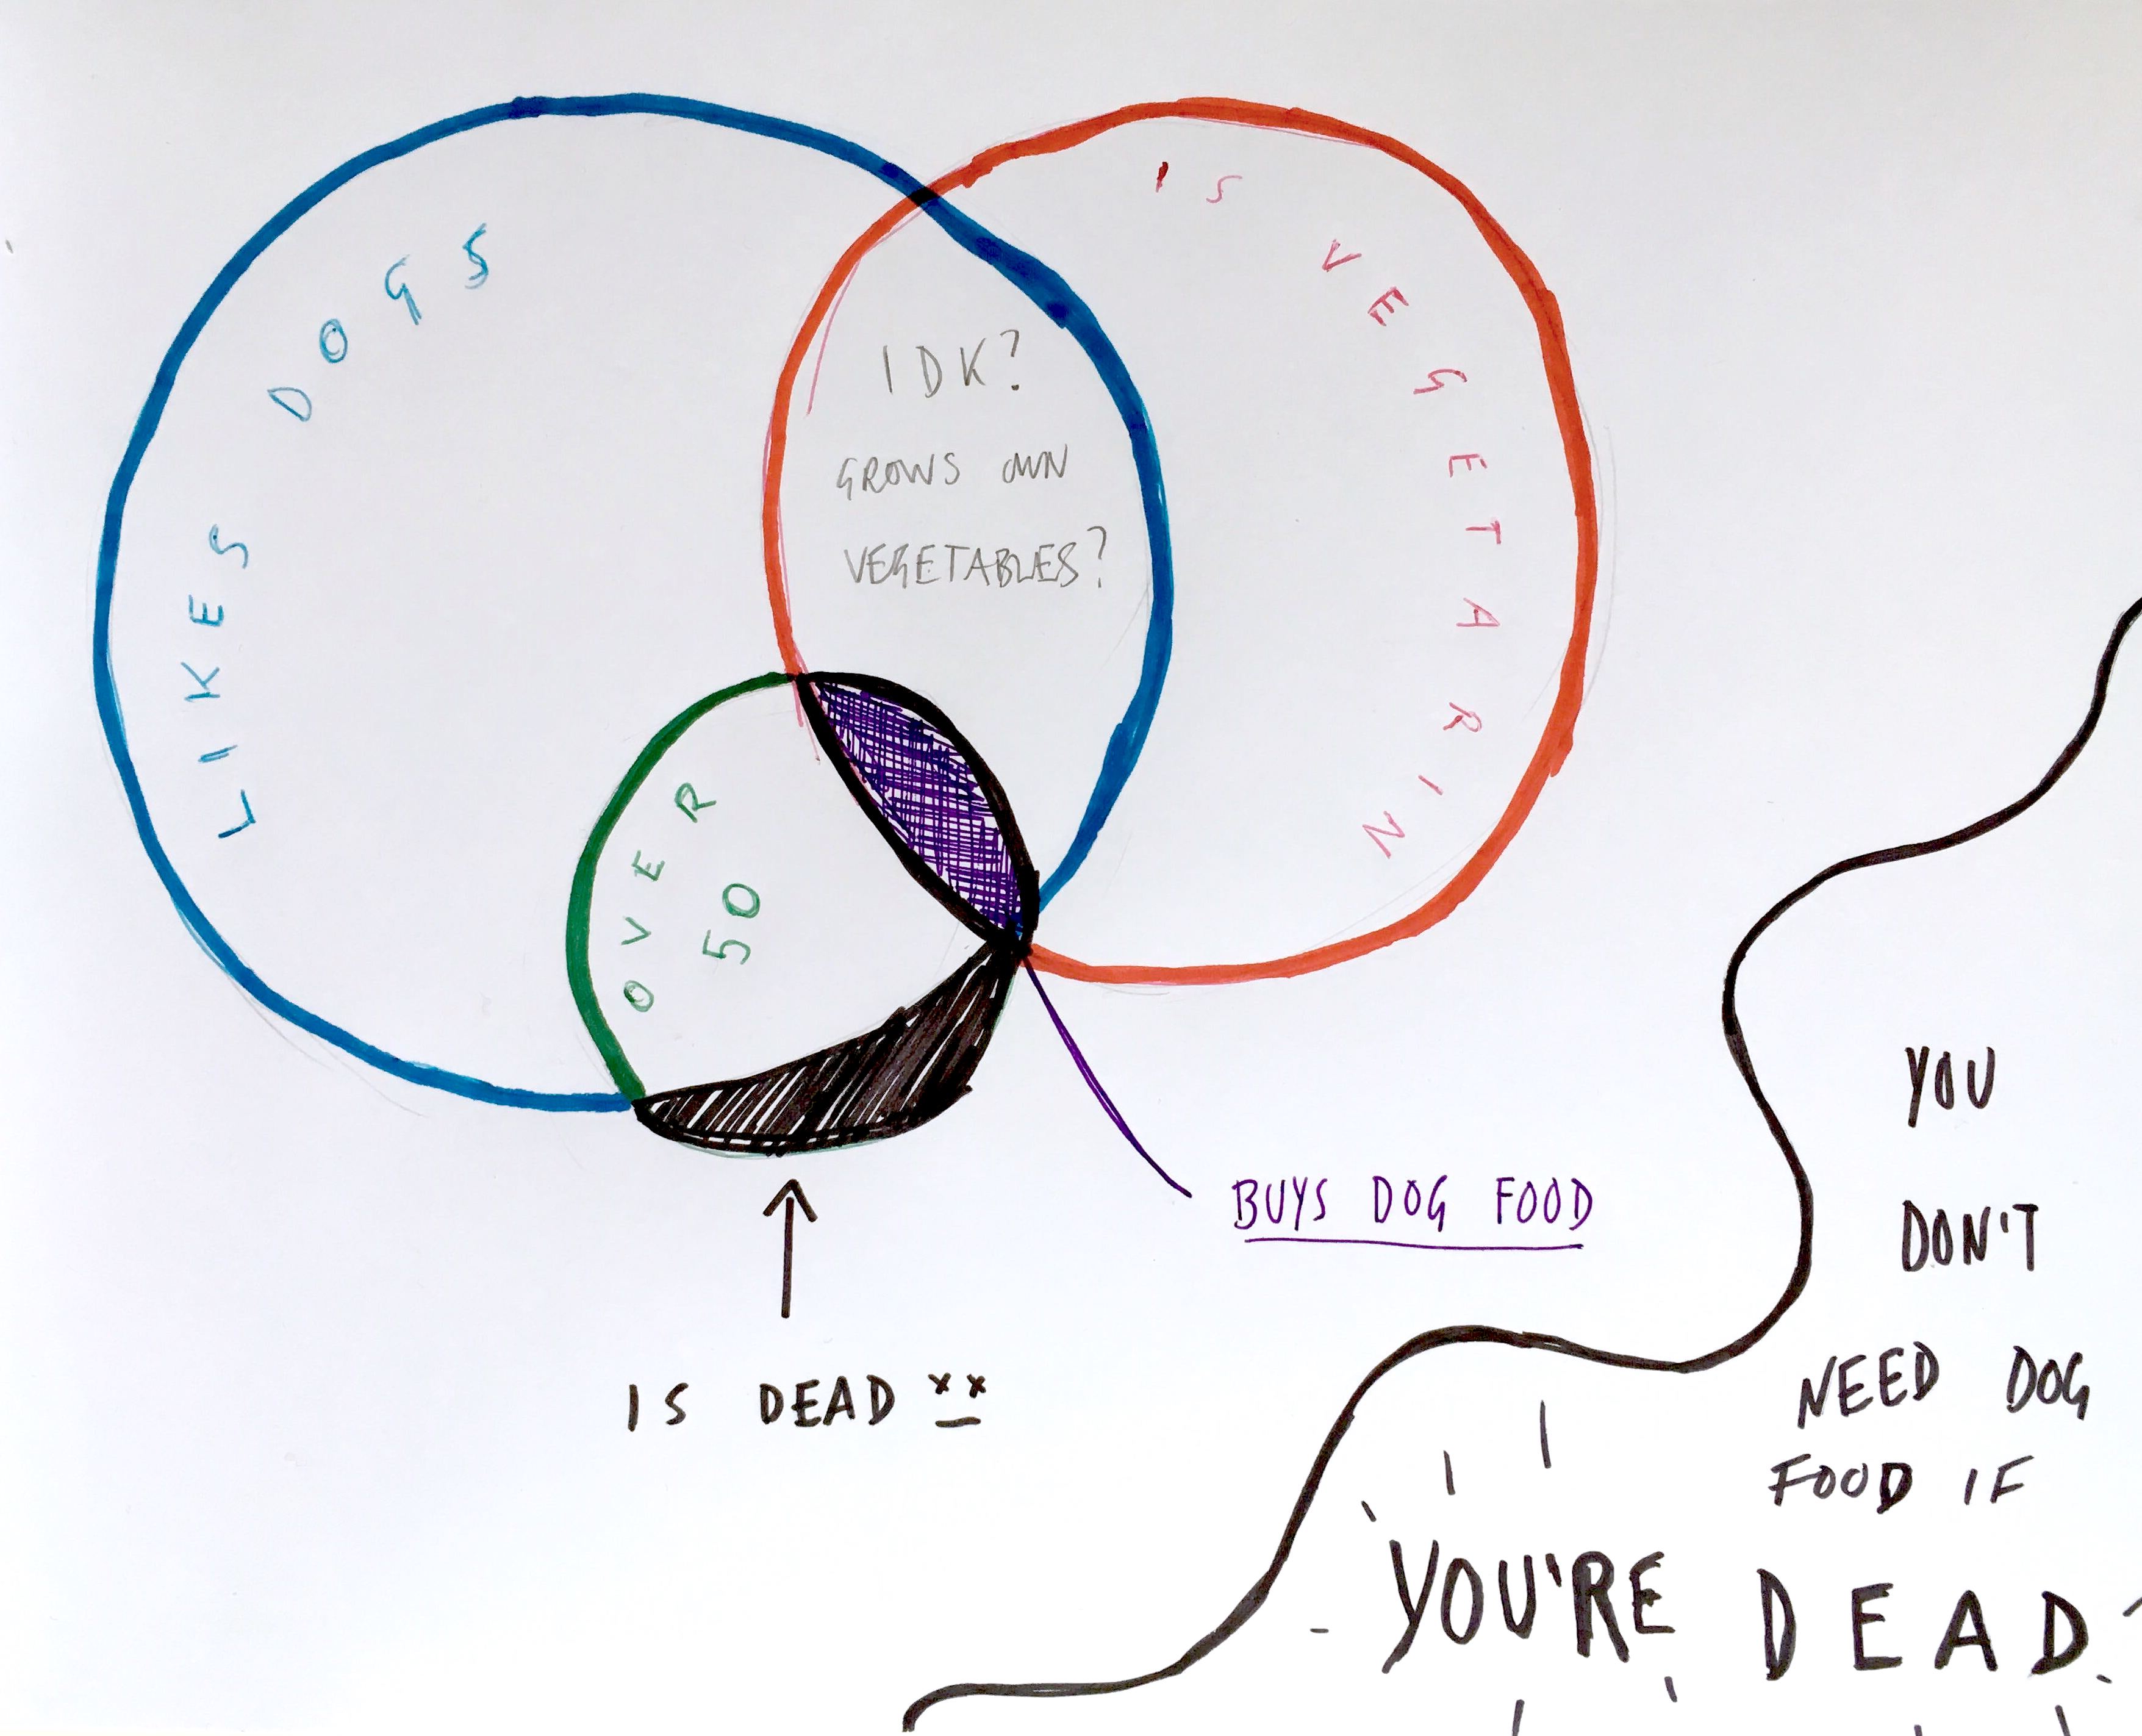 LIKES DOGS
IS VEGETARIN
IDK?
GROWS OWN
VEGETABLES?
OVER
50
BUYS DOG FOOD
IS DEAD
YOU
DON'T
NEED DOG
FOOD IF
YOU'RE DEAD.